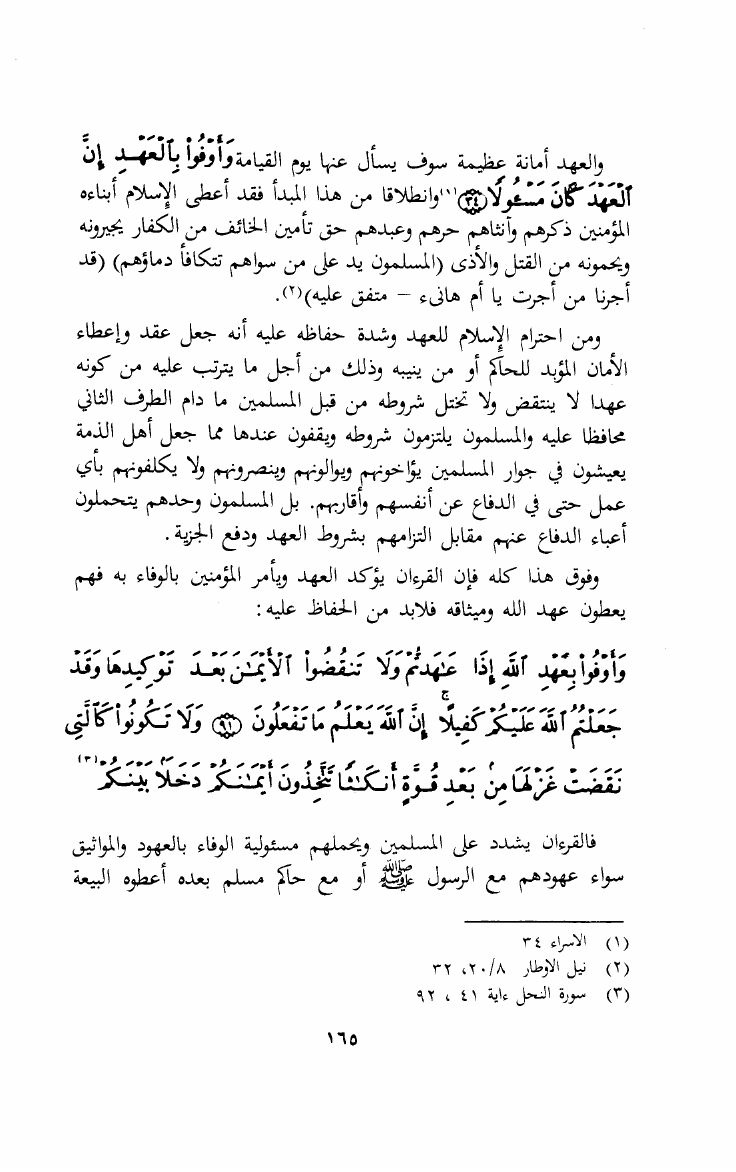 والعهد أمانة عظيمة سوف يسأل عنها يوم القيامة وَأَوْفُوا۟ بِٱلْعَهْدِ إِنَّ
ٱلْعَهْدَ كَانَ مَسْـُٔولًا ﴿٣٤﴾(١) وانطلاقا من هذا المبدأ فقد أعطى الإسلام أبناءه
المؤمنين ذكرهم وآنثاهم حرهم وعبدهم حق تأمين الخائف من الكفار يجيرونه
ويحمونه من القتل والأذى (المسلمون يد على من سواهم تتكافأ دماؤهم) (قد
أجرنا من أجرت يا أم هانىء – متفق عليه)(٢).
ومن احترام الإسلام للعهد وشدة حفاظه عليه أنه جعل عقد وإعطاء
الأمان المؤبد للحاكم أو من ينيبه وذلك من أجل ما يترتب عليه من كونه
عهدا لا ينتقض ولا تختل شروطه من قبل المسلمين ما دام الطرف الثاني
محافظا عليه والمسلمون يلتزمون شروطه ويقفون عندها مما جعل أهل الذمة
يعيشون في جوار المسلمين يؤاخونهم ويوالونهم وينصرونهم ولا يكلفونهم بأي
عمل حتى في الدفاع عن أنفسهم وأقاربهم. بل المسلمون وحدهم يتحملون
أعباء الدفاع عنهم مقابل التزامهم بشروط العهد ودفع الجزية.
وفوق هذا كله فإن القرءان يؤكد العهد ويأمر المؤمنين بالوفاء به فهم
يعطون عهد الله وميثاقه فلابد من الحفاظ عليه:
وَأَوْفُوا۟ بِعَهْدِ ٱللَّهِ إِذَا عَـٰهَدتُّمْ وَلَا تَنقُضُوا۟ ٱلْأَيْمَـٰنَ بَعْدَ تَوْكِيدِهَا وَقَدْ
جَعَلْتُمُ ٱللَّهَ عَلَيْكُمْ كَفِيلًا ۚ إِنَّ ٱللَّهَ يَعْلَمُ مَا تَفْعَلُونَ ﴿٩١﴾ وَلَا تَكُونُوا۟ كَٱلَّتِى
نَقَضَتْ غَزْلَهَا مِنۢ بَعْدِ قُوَّةٍ أَنكَـٰثًا تَتَّخِذُونَ أَيْمَـٰنَكُمْ دَخَلًۢا بَيْنَكُمْ(٣)
فالقرءان يشدد على المسلمين ويحملهم مسئولية الوفاء بالعهود والمواثيق
سواء عهودهم مع الرسول ﷺ أو مع حاكم مسلم بعده أعطوه البيعة
(١) الاسراء ٣٤
(٢) نيل الاوطار ٢٠/٨، ٣٢
(٣) سورة النحل ءاية ٤١ ، ٩٢
١٦٥